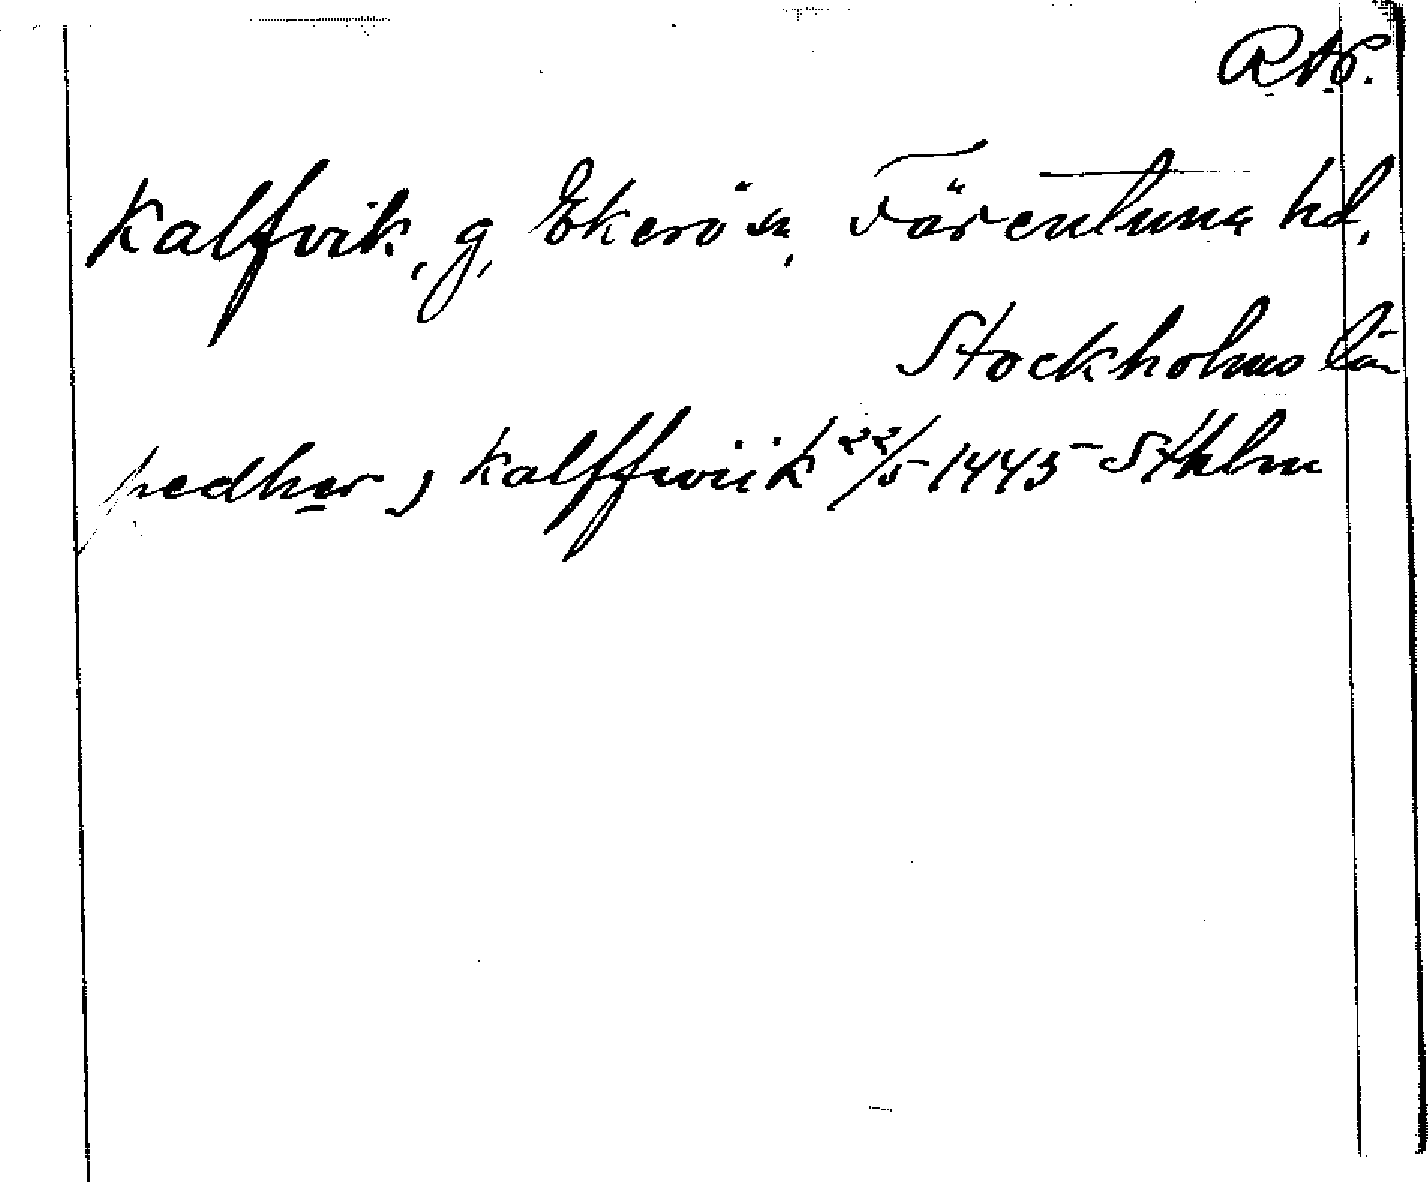 RAP.
Kalfvik, g, Ekerö sn, Färentuna hd,
Stockholms län
pedher j kalffwiik 22/5 1445 Sthlm